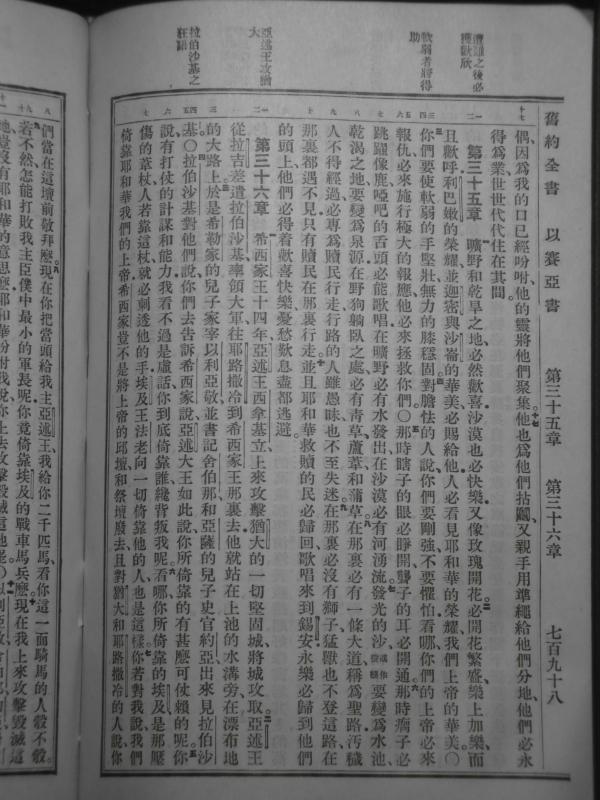 舊約全書　以賽亞書　第三十五章　第三十六章　七百九十八
遭難之後必獲歡欣
軟弱者將得助
亞述王攻猶大
拉伯沙基之狂語
偶因為我的口已經吩咐他的靈將他們聚集他也為他們拈鬮又親手用準繩給他們分地他們必永
得為業世世代代住在其間
第三十五章　曠野和乾旱之地必然歡喜沙漠也必快樂又像玫瑰開花必開花繁盛樂上加樂而
且歡呼利巴嫩的榮耀並迦密與沙崙的華美必賜給他人必看見耶和華的榮耀我們上帝的華美〇
你們要使軟弱的手堅壯無力的膝穩固對膽怯的人說你們要剛強不要懼怕看哪你們的上帝必來
報仇必來施行極大的報應他必來拯救你們〇那時瞎子的眼必睜開聾子的耳必開通那時瘸子必
跳躍像鹿啞吧的舌頭必能歌唱在曠野必有水發出在沙漠必有河湧流發光的沙要變為水池
乾渴之地要變為泉源在野狗躺臥之處必有青草蘆葦和蒲草在那裏必有一條大道稱為聖路汚穢
人不得經過必專為贖民行走行路的人雖愚昧也不至失迷在那裏必沒有獅子猛獸也不登這路在
那裏都遇不見只有贖民在那裏行走並且耶和華救贖的民必歸回歌唱來到錫安永樂必歸到他們
的頭上他們必得着歡喜快樂憂愁歎息盡都逃避
第三十六章　希西家王十四年亞述王西拿基立上來攻擊猶大的一切堅固城將城攻取亞述王
從拉吉差遣拉伯沙基率領大軍往耶路撒冷到希西家王那裏去他就站在上池的水溝旁在漂布地
的大路上於是希勒家的兒子家宰以利亞敬並書記舍伯那和亞薩的兒子史官約亞出來見拉伯沙
基〇拉伯沙基對他們說你們去告訴希西家說亞述大王如此說你所倚靠的有甚麽可仗賴的呢你
說有打仗的計謀和能力我看不過是虛話你到底倚靠誰纔背叛我呢看哪你所倚靠的埃及是那壓
傷的葦杖人若靠這杖就必刺透他的手埃及王法老向一切倚靠他的人也是這樣你若對我說我們
倚靠耶和華我們的上帝希西家豈不是將上帝的邱壇和祭壇廢去且對猶大和耶路撒冷的人說你
們當在這壇前敬拜麽現在你把當頭給我主亞述王我給你二千匹馬看你這一面騎馬的人彀不彀
若不然怎能打敗我主臣僕中最小的軍長呢你竟倚靠埃及的戰車馬兵麽現在我上來攻擊毀滅這